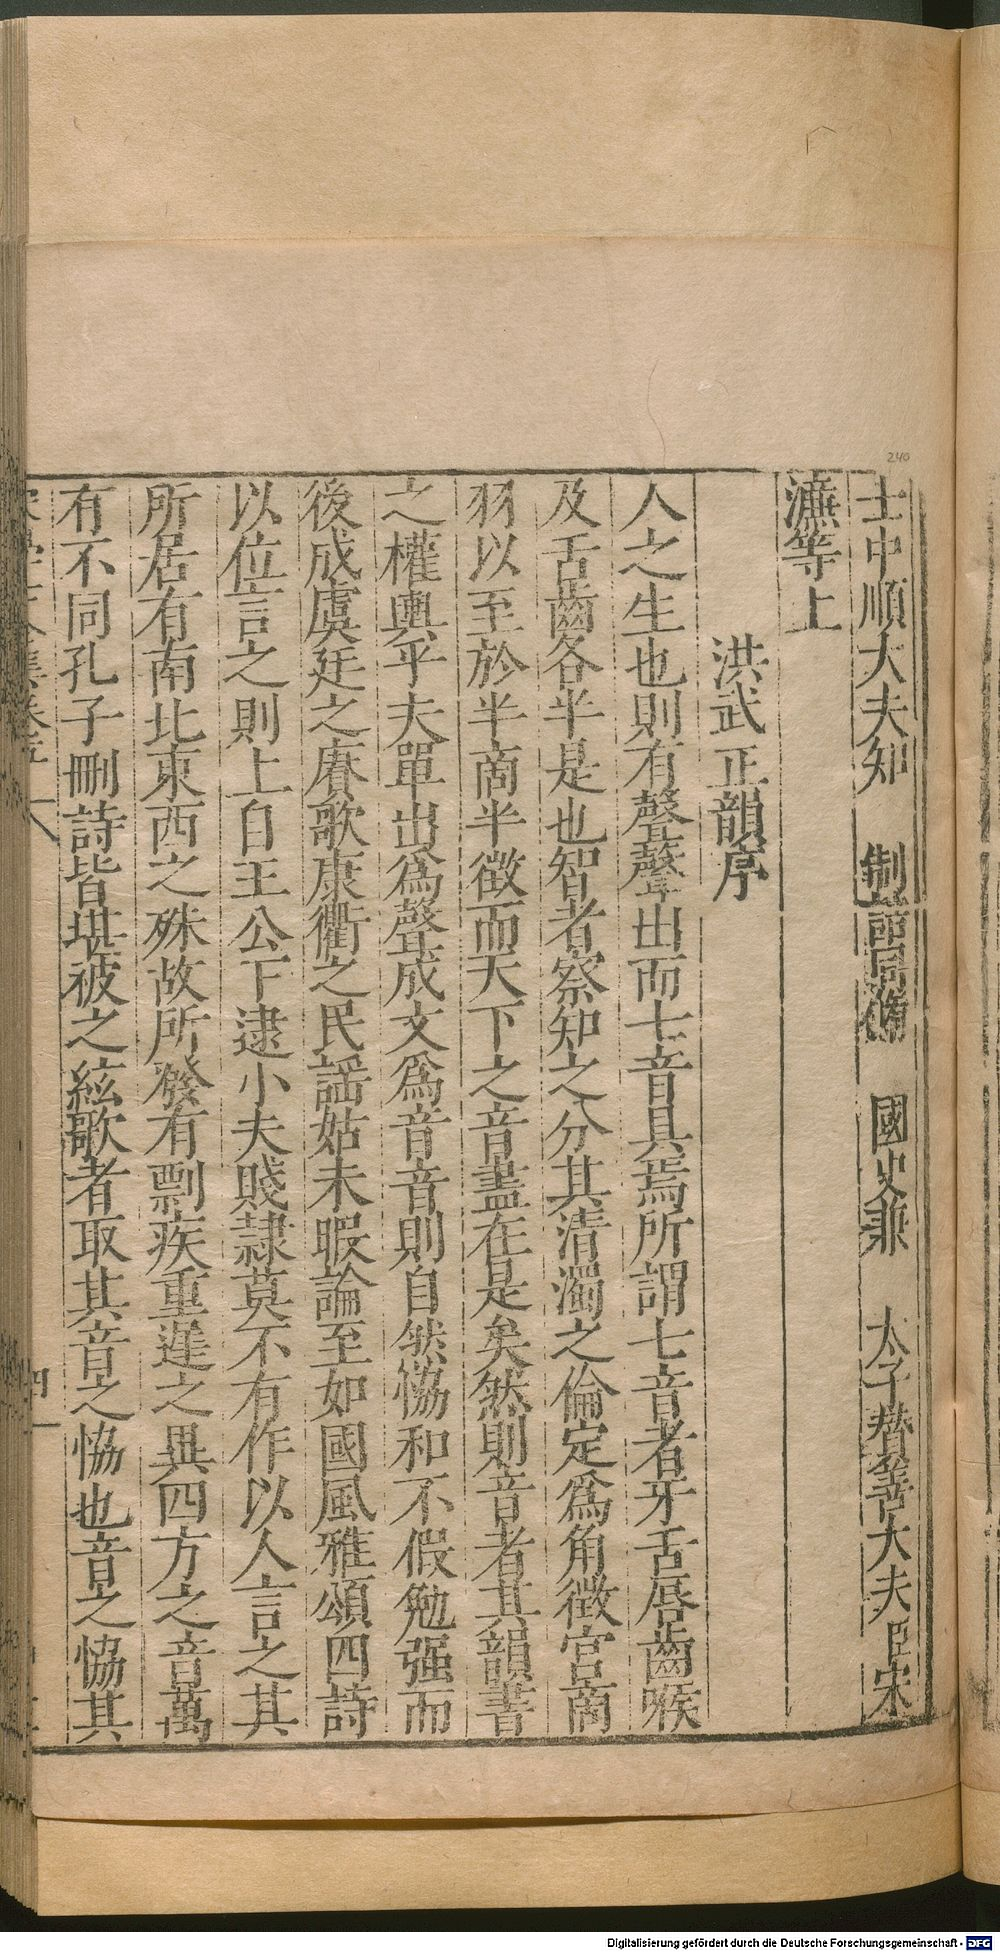 士中順大夫知 制誥同脩 國史兼 太子贊善大夫臣宋
濂等上
洪武正韻序
人之生也則有聲聲出而七音具焉所謂七音者牙舌唇齒喉
及舌齒各半是也智者察知之分其清濁之倫定爲角徵宮商
羽以至於半商半徵而天下之音盡在是矣然則音者其韻書
之權輿乎夫單出爲聲成文爲音音則自然恊和不假勉强而
後成虞廷之賡歌康衢之民謡姑未暇論至如國風雅頌四詩
以位言之則上自王公下逮小夫賤隸莫不有作以人言之其
所居有南北東西之殊故所發有剽疾重遲之異四方之音萬
有不同孔子刪詩皆堪被之絃歌者取其音之恊也音之恊其
240
Digitalisierung gefördert durch die Deutsche Forschungsgemeinschaft - DFG